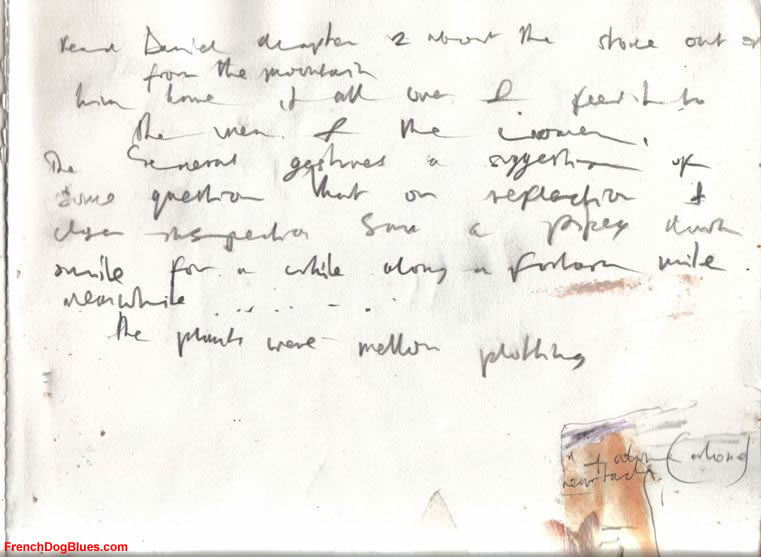 read Daniel chapter 2 about the stone out of
from the mountain
him home & all over I feed it to
the men & the women.
The General gestures a suggestion of
some question that on reflection &
closer inspection saw a drunk
smile for a while along a forlorn mile.
meanwhile . . . . . . .
The plants were mellow plotting
+ (along)
FrenchDogBlues.com